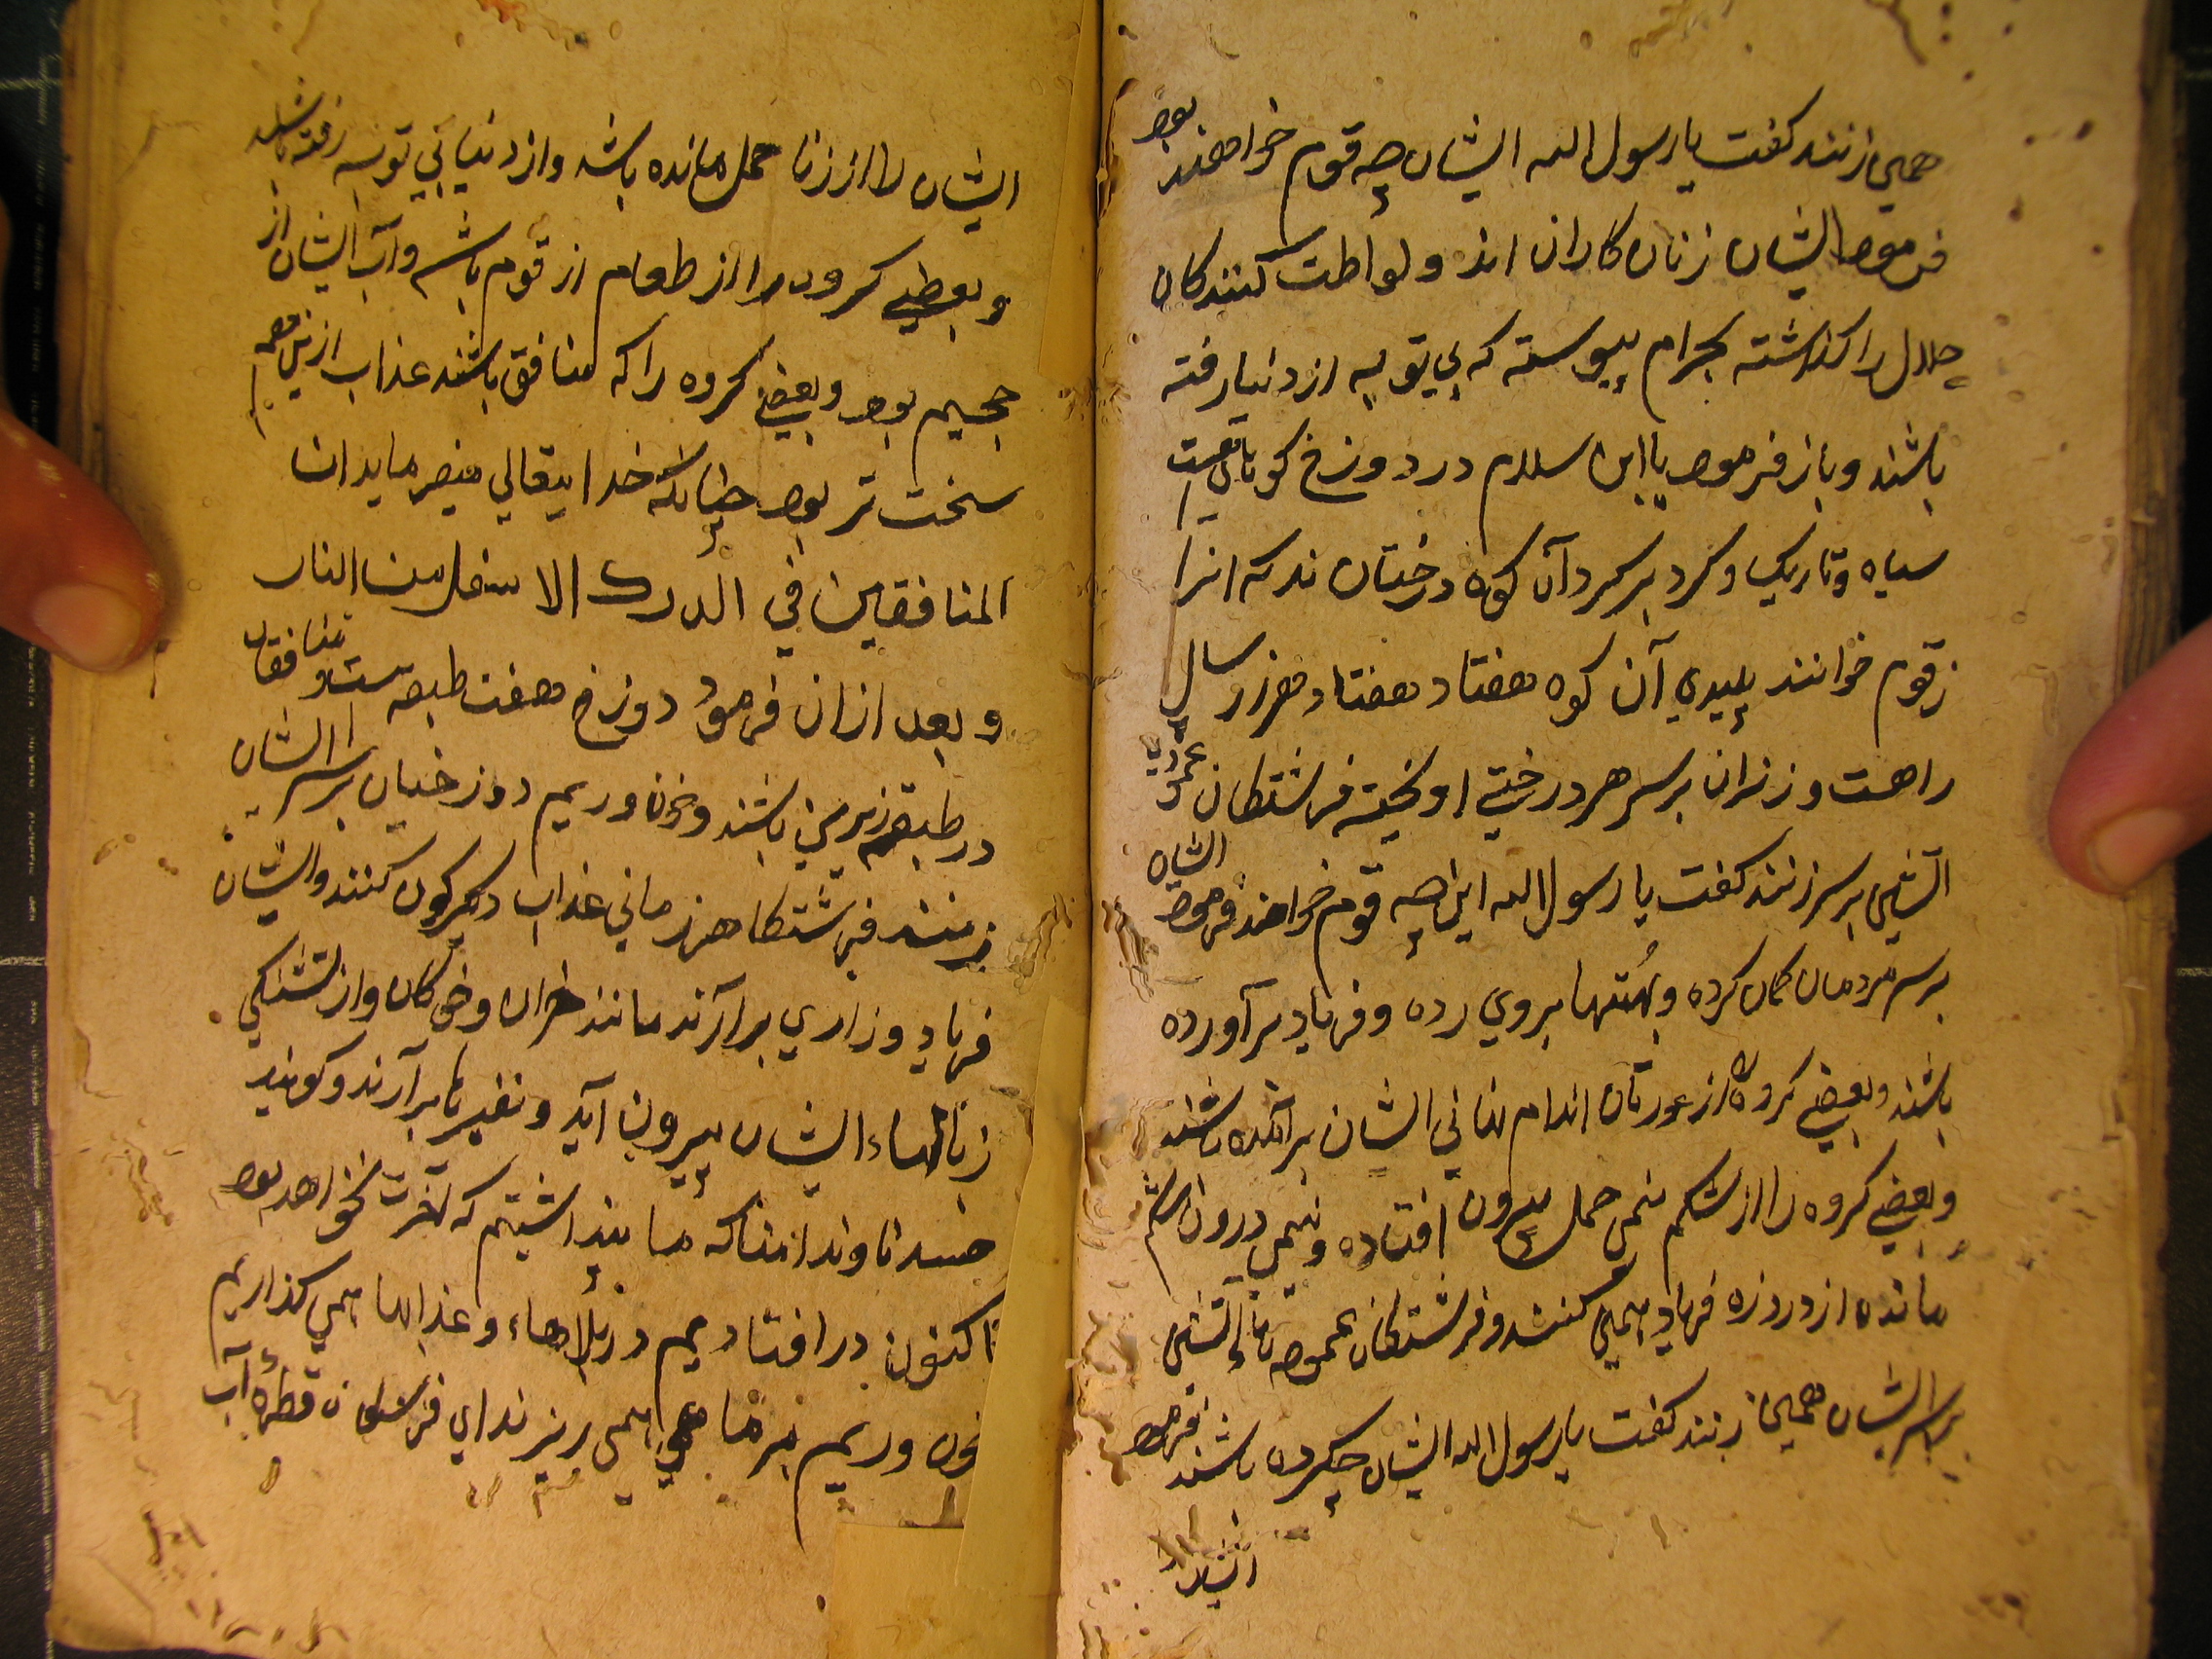 همی زنند کفت یا رسول الله ایشان چه قوم خواهند بود
فرمود ایشان زنان کاران اند و لواطت کنندکان
حلال را کذاشته بحرام پیوسته که بی توبه از دنیا رفته
باشند و باز فرمود یا ابن سلام در دوزخ کوهی است
سیاه و تاریک و کرد بر کرد آن کوه درختان ند که انرا
زقوم خوانند پلیدی آن کوه هفتاد هفتاد هزار سال
راهست و زنان بر سر هر درختی اویخته فرشتکان عمود
آتشی بر سر زنند کفت یا رسول الله این چه قوم خواهند فرمود ایشان
بر سر مردمان کمان کرده و بهتنها بروی رده و فریاد برآورده
باشند و بعضی کروه از عورتان اندام نهانی ایشان برآمده باشند
و بعضی کروه را از شکم نیمی حمل بیرون افتاده و نیمی درون شکم
مانده از درد زه فریاد همی کنند و فرشتکان عمودهاء آتشی
بر سر ایشان همی زنند کفت یا رسول الله ایشان چکرده باشند فرمود
ایشان را
ایشان را از زنا حمل مانده باشد و از دنیا بی توبه رفته باشند
و بعضی کروه را از طعام از زقوم باشد و آب ایشان از
جحیم بود و بعضی کروه را که منافق باشند عذاب ازین همه
سخت تر بود چنانکه خدایتعالی میفرماید ان
المنافقین فی الدرک الاسفل من النار
و بعد ازان فرمود دوزخ هفت طبقه ست و منافقان
در طبقه زیرین باشند و خون و ریم دوزخیان بر سر ایشان
زمنند فرشتکا هر زمانی عذاب دیکرکون کنند و ایشان
فریاد و زاری برآرند مانند خران و خوکان و از تشنکی
زبانهاء ایشان بیرون آید و نفیرها برآرند و کویند
حسرتا و ندامتا که ما پنداشتیم که آخرت نخواهد بود
تا کنون در افتادیم در بلاهاء و عذابها همی کذاریم
خون و ریم بر ما همی ریزند ای فرشتکان قطرهٔ آب